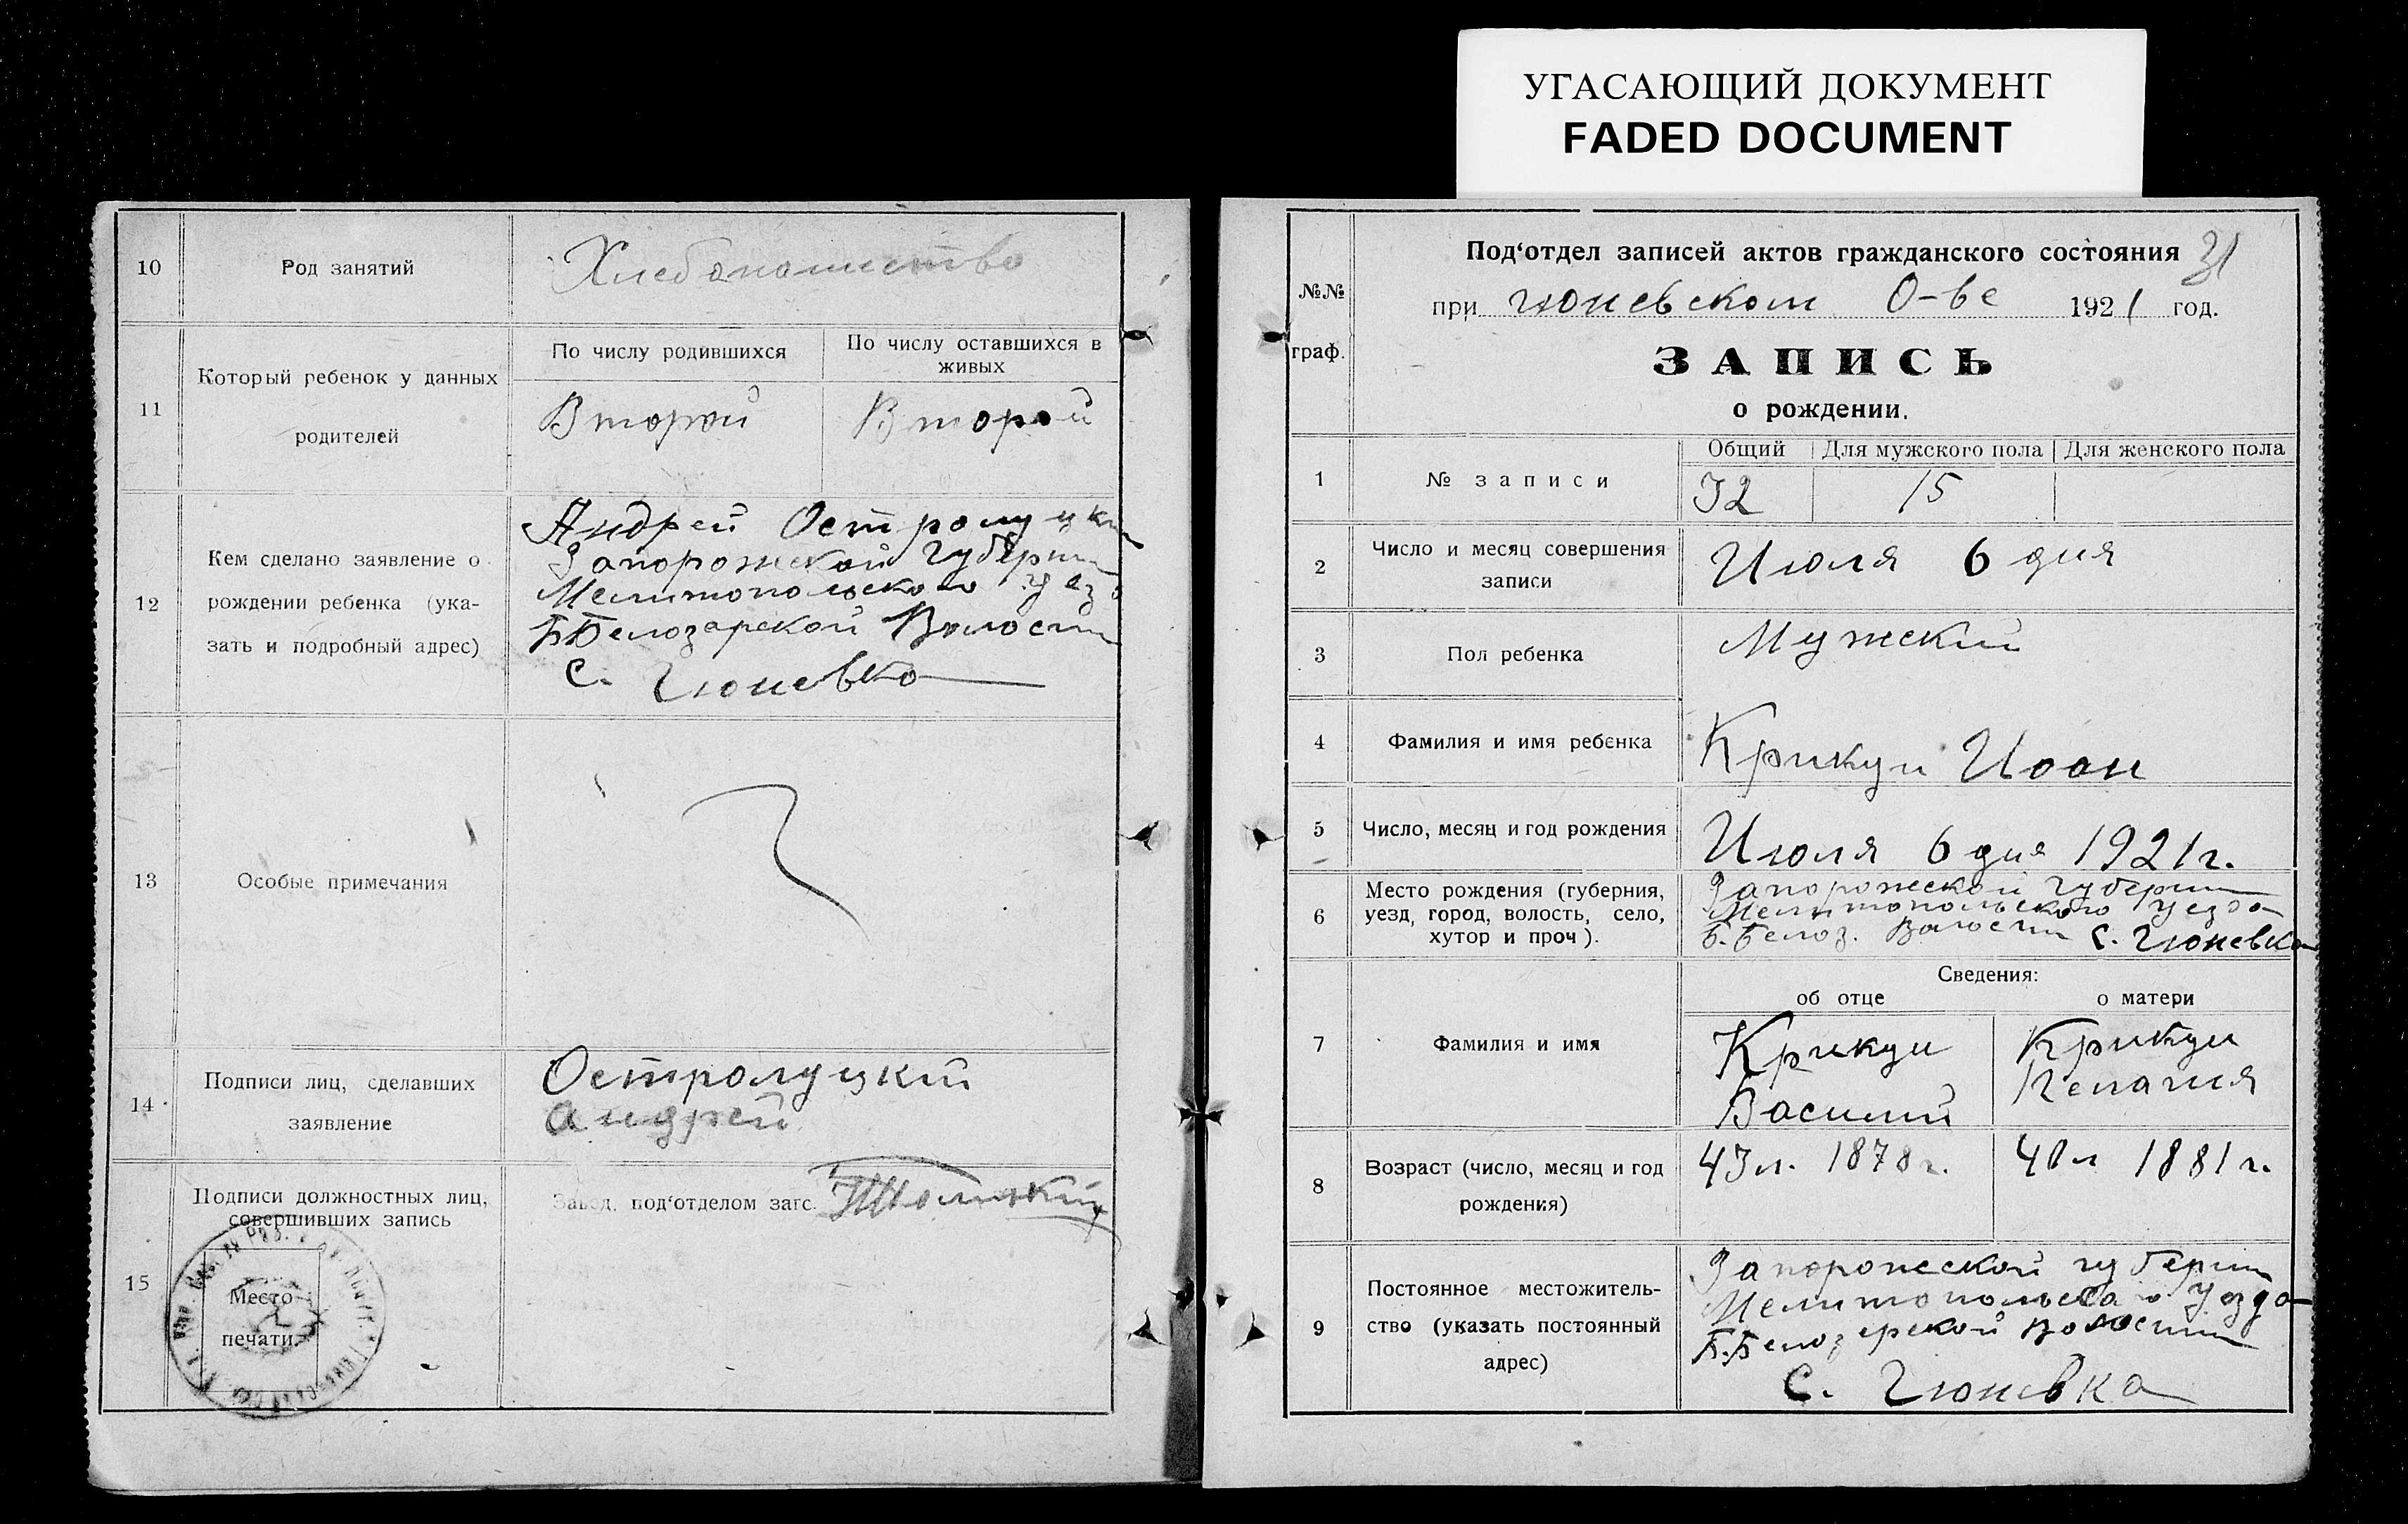 УГАСАЮЩИЙ ДОКУМЕНТ
FADED DOCUMENT
10
Род занятий
Хлебопашество
11
Который ребенок у данных
родителей
По числу родившихся
По числу оставшихся в
живых
Второй
Второй
12
Кем сделано заявление о
рождении ребенка (ука-
зать и подробный адрес)
Андрей Остролуцкий
Запорожской Губернии
Мелитопольского уез
Б Белозарской Волости
С. Гюневка
13
Особые примечания
14
Подписи лиц, сделавших
заявление
Остролуцкий
Андрей
15
Подписи должностных лиц,
совершивших запись
Завед. под‘отделом загс.
Место
печати.
31
№№
граф.
Под‘отдел записей актов гражданского состояния
при Гюневском О-ве 1921 год.
ЗАПИСЬ
о рождении.
1
№ записи
Общий
Для мужского пола
Для женского пола
32
15
2
Число и месяц совершения
записи
Июля 6 дня
3
Пол ребенка
Мужский
4
Фамилия и имя ребенка
Крикун Иоан
5
Число, месяц и год рождения
Июля 6 дня 1921 г.
6
Место рождения (губерния,
уезд, город, волость, село,
хутор и проч).
Запорожской Губернии
Мелитопольского уезда
Б. Белоз. Волости С. Гюневка
Сведения:
об отце
о матери
7
Фамилия и имя
Крикун
Василий
Крикун
Пелагия
8
Возраст (число, месяц и год
рождения)
43 л. 1878 г.
40 л 1881 г.
9
Постоянное местожитель-
ство (указать постоянный
адрес)
Запорожской губернии
Мелитопольского Уезда
Б. Белозерской волости
С. Гюневка